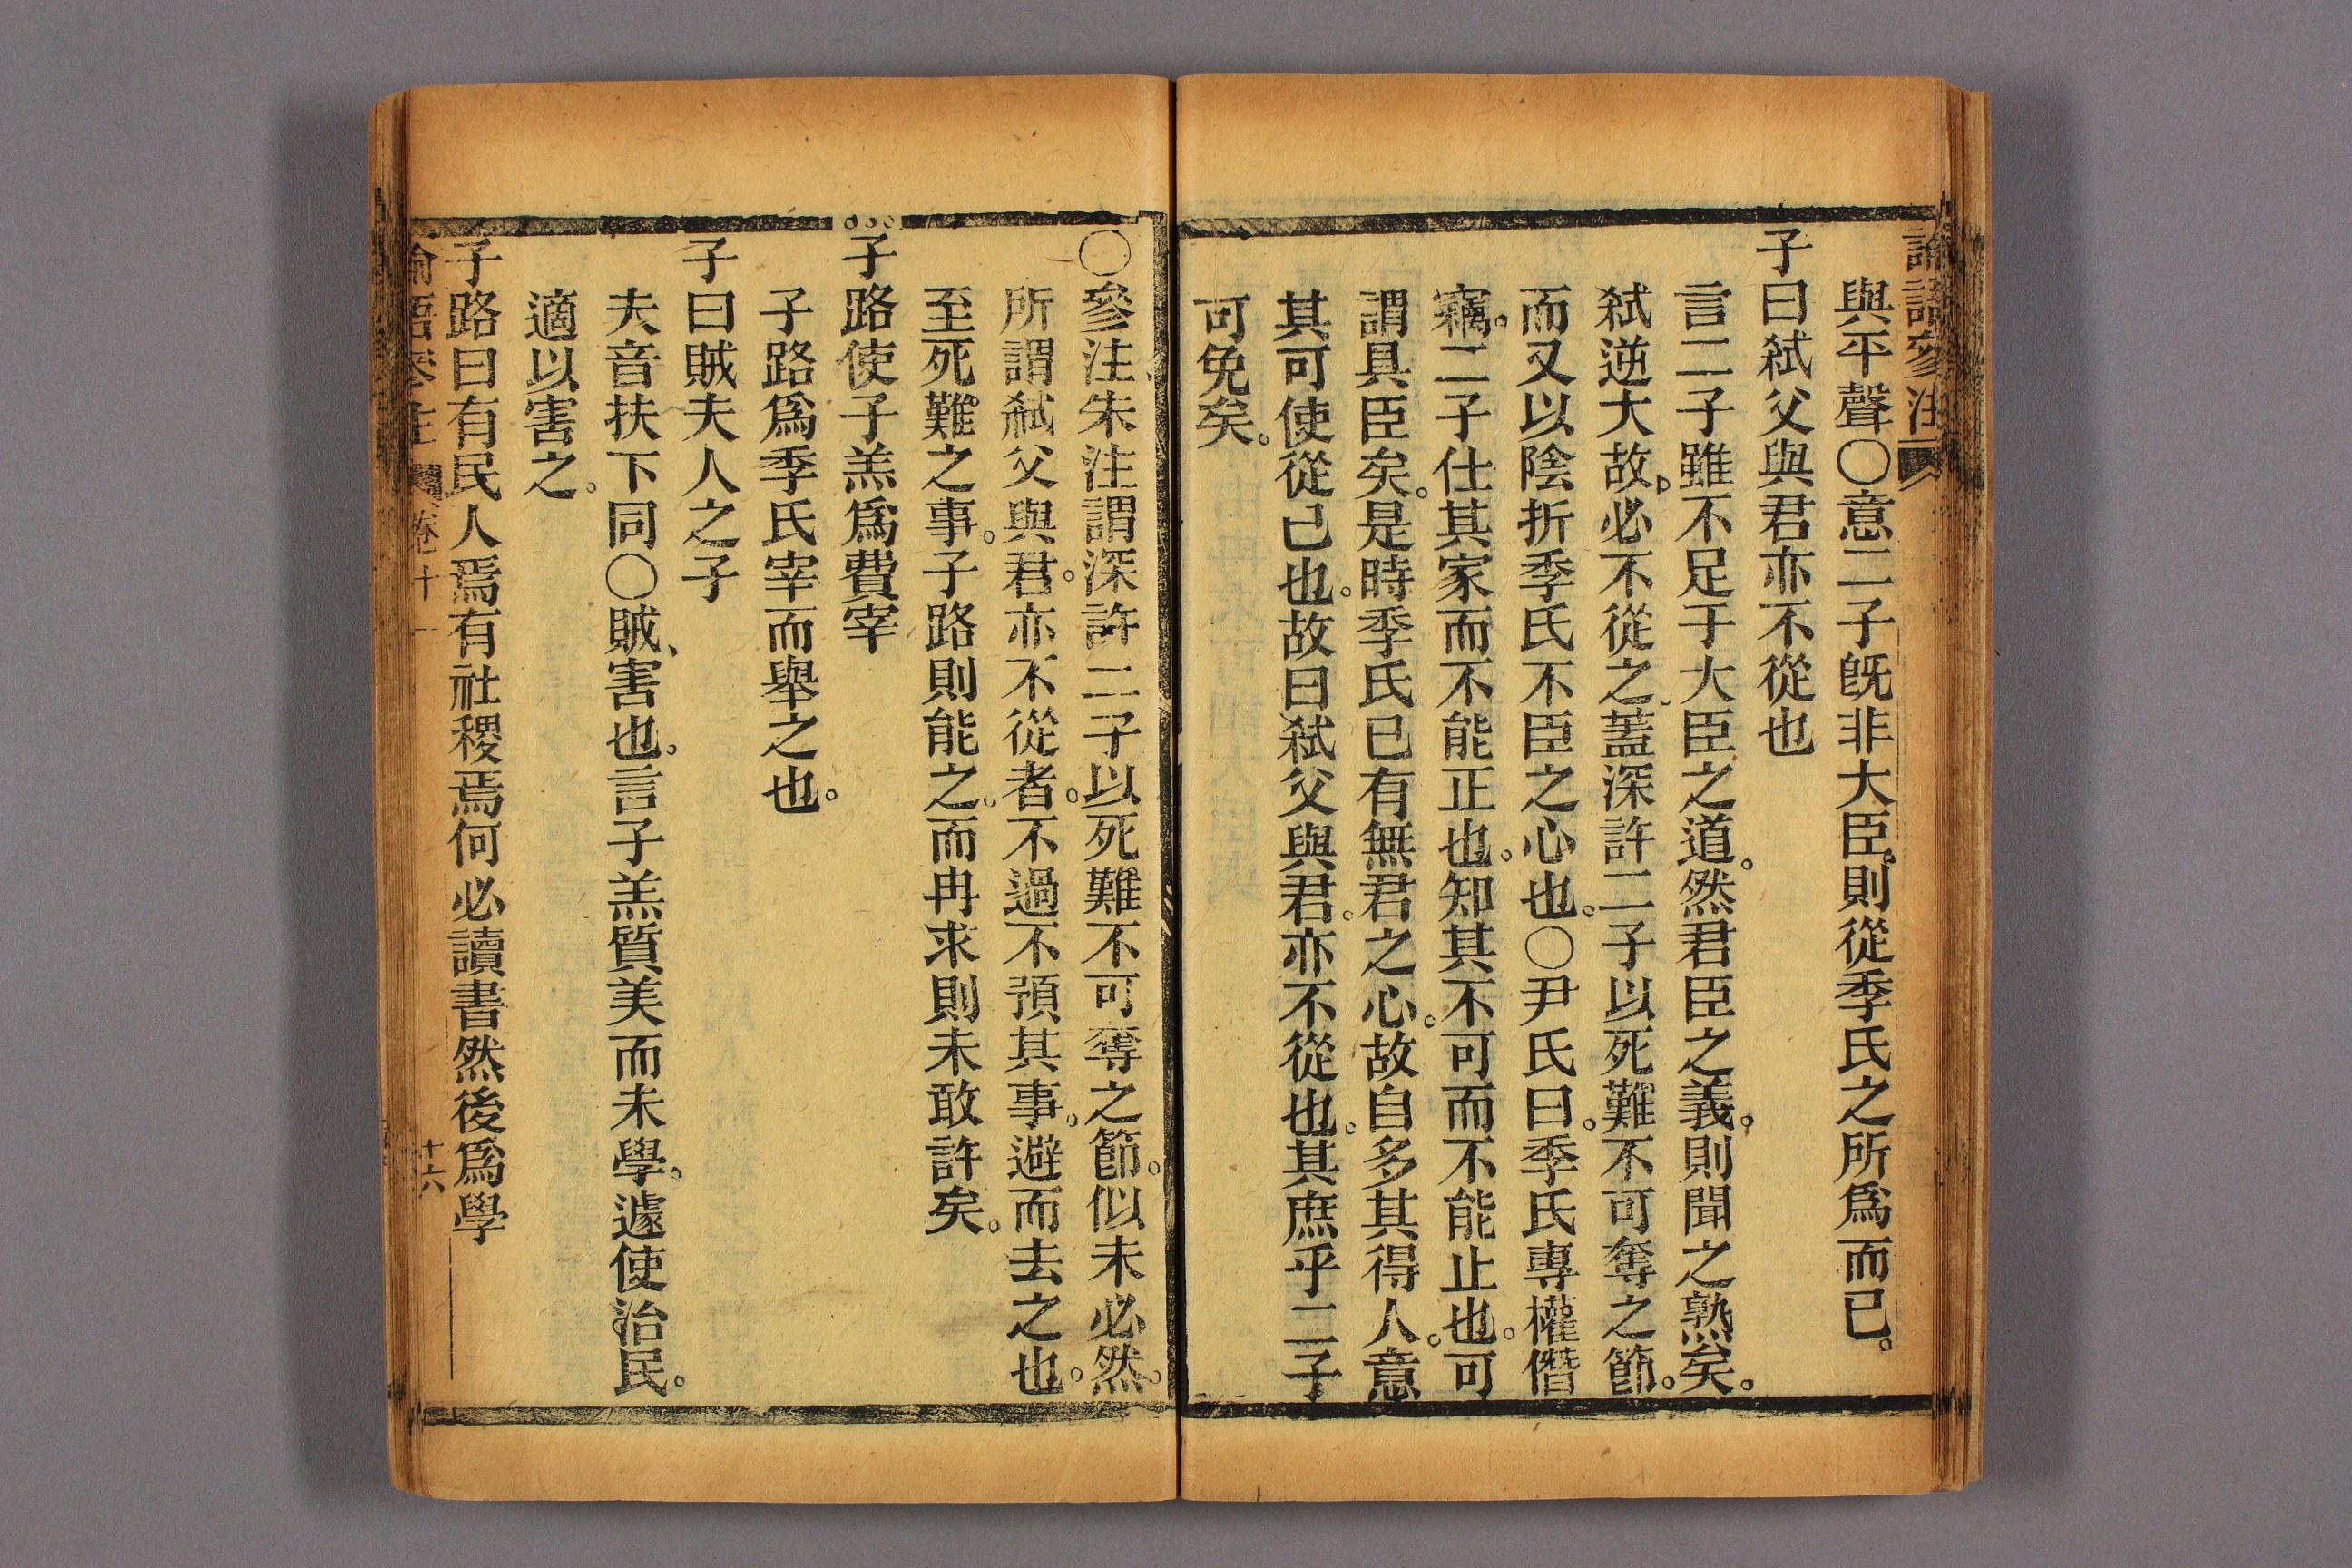 論語參注
與平聲〇意二子旣非大臣則從季氏之所爲而已。
子曰弑父與君亦不從也
言二子雖不足于大臣之道。然君臣之義。則聞之熟矣。
弑逆大故。必不從之。蓋深許二子以死難不可奪之節。
而又以陰折季氏不臣之心也。〇尹氏曰。季氏專權僭
竊。二子仕其家而不能正也。知其不可而不能止也。可
謂具臣矣。是時季氏已有無君之心。故自多其得人。意
其可使從己也。故曰弑父與君。亦不從也。其庶乎二子
可免矣。
〇參注、朱注謂深許二子以死難不可奪之節。似未必然。
所謂弑父與君。亦不從者。不過不預其事。避而去之也。
至死難之事。子路則能之。而冉求則未敢許矣。
子路使子羔爲費宰
子路爲季氏宰而舉之也。
子曰賊夫人之子
夫音扶下同〇賊、害也。言子羔質美而未學。遽使治民。
適以害之。
子路曰有民人焉有社稷焉何必讀書然後爲學
論語參注 卷十一 十六